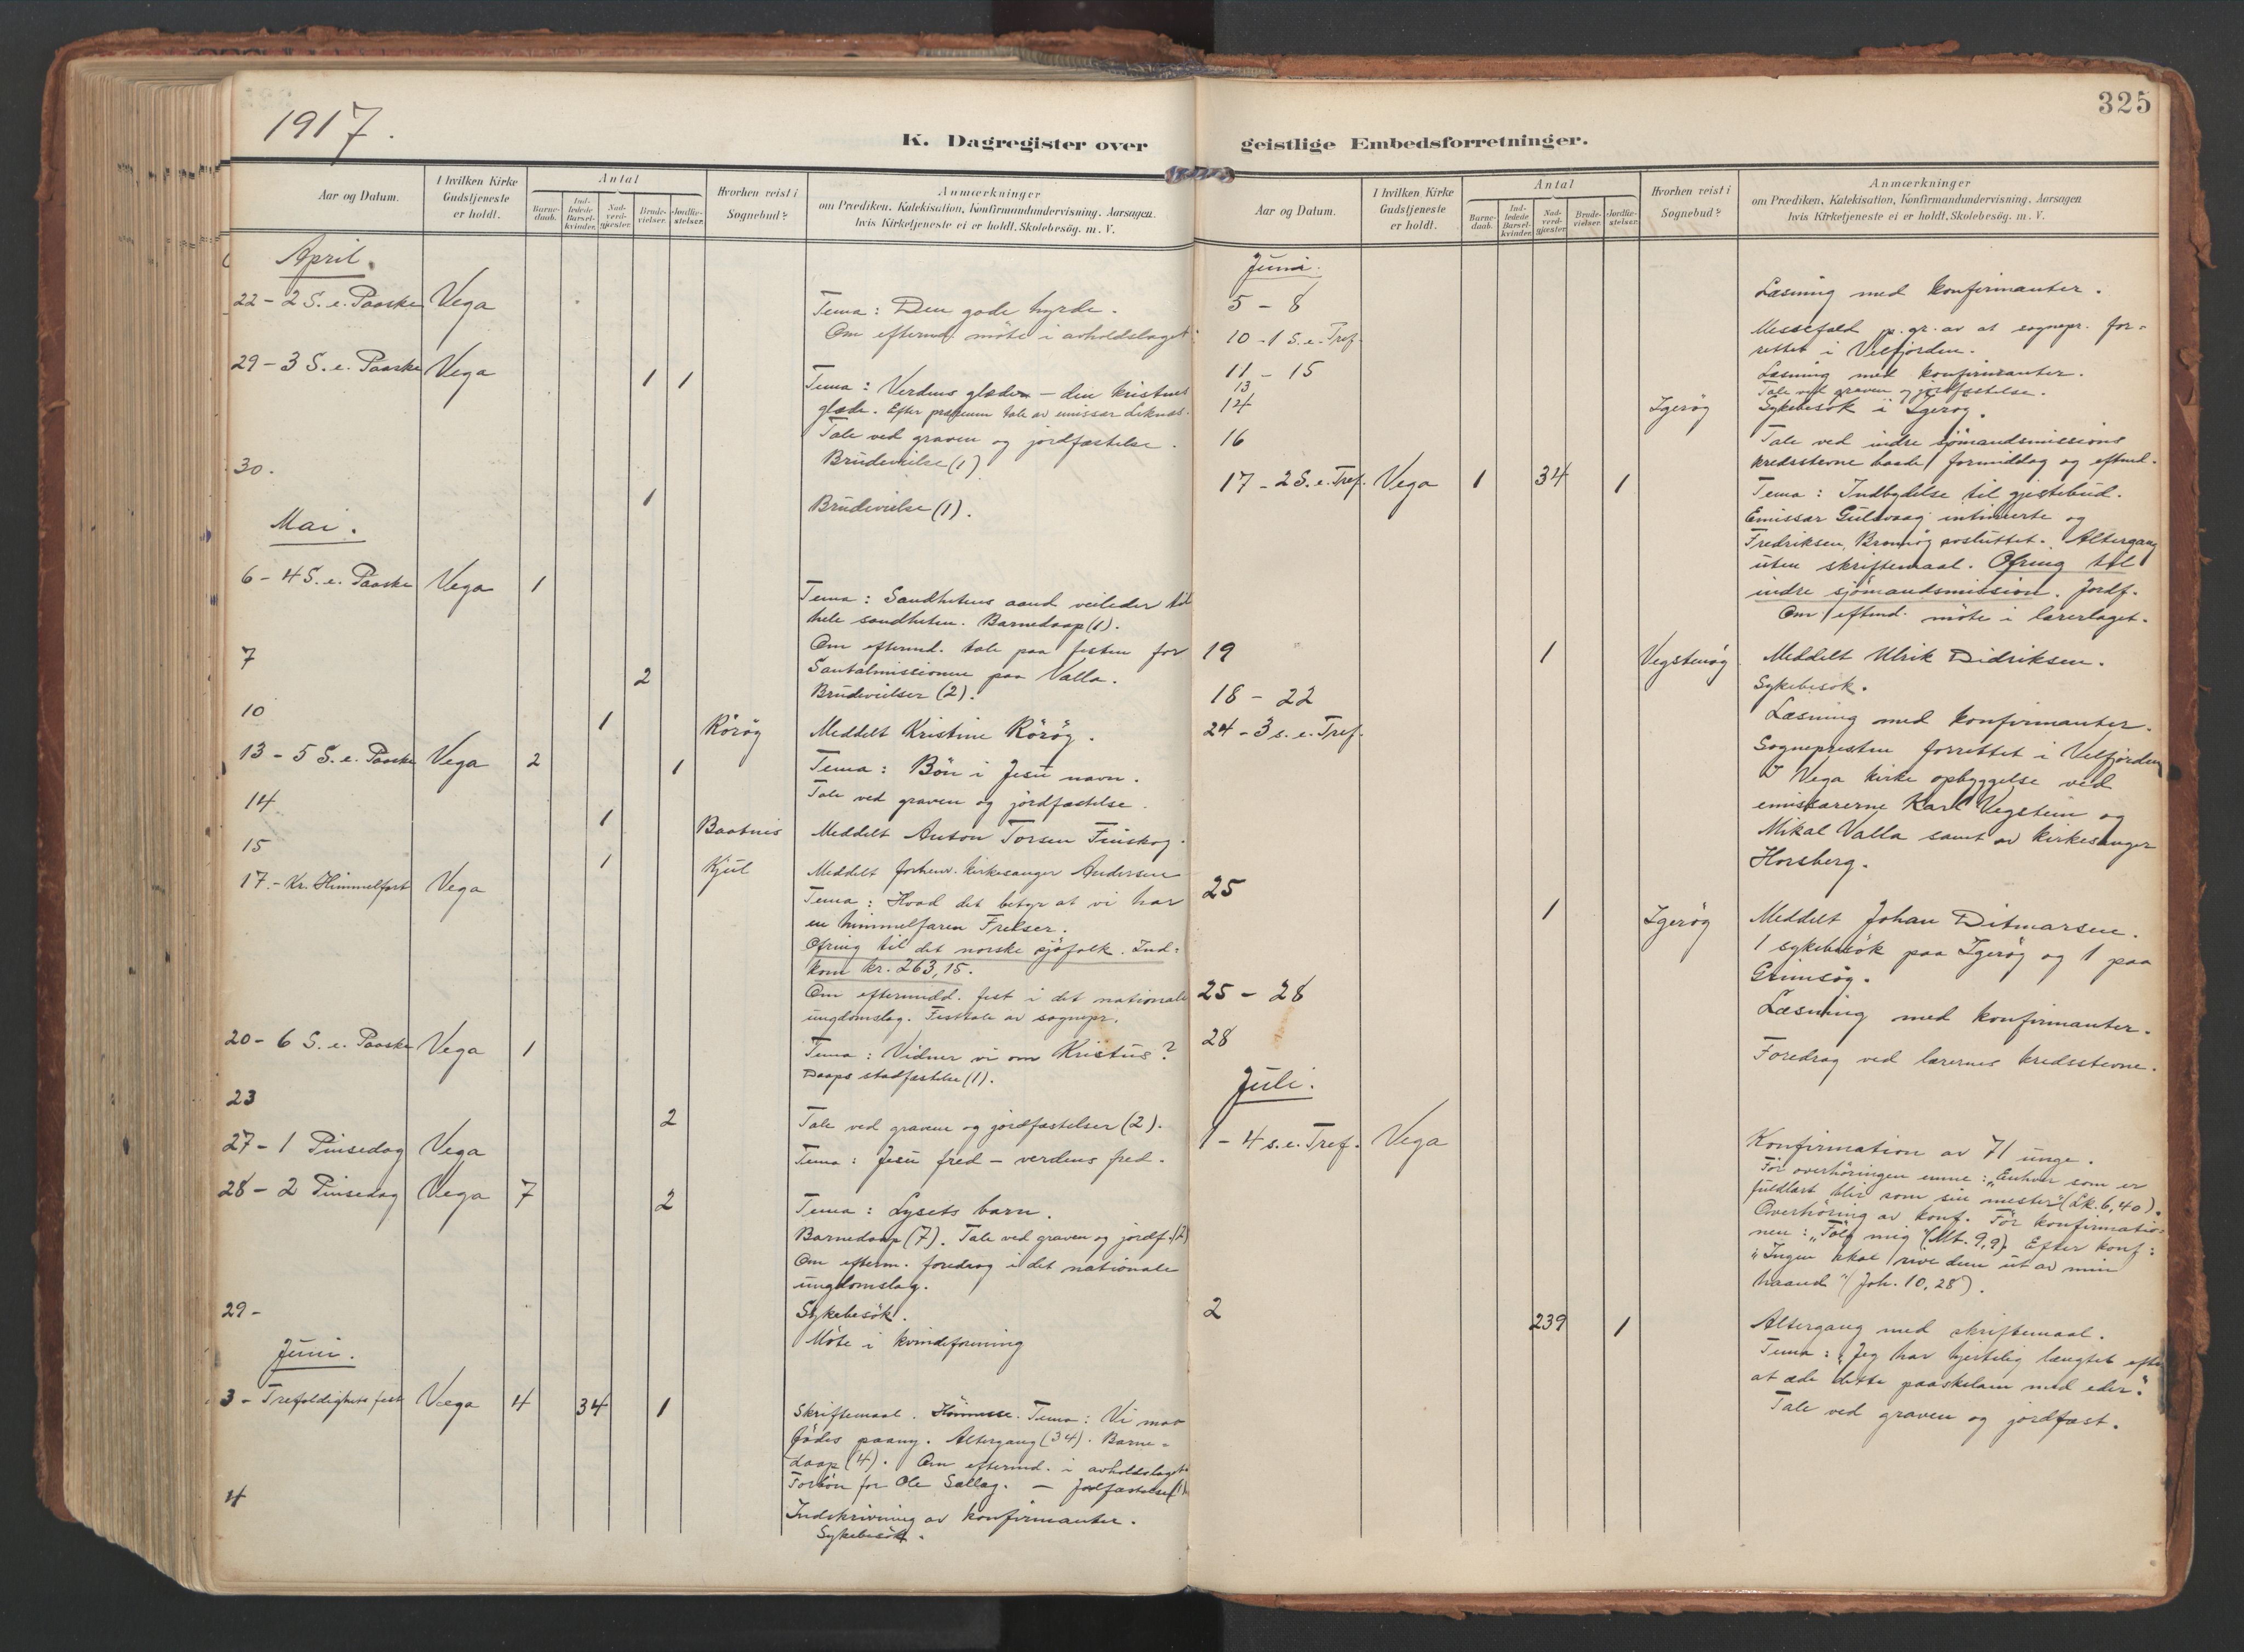 1917.
K. Dagregister over
Aar og Datum.
I hvilken Kirke Gudstjeneste er holdt.
Antal
Barne-daab.
Ind-ledede Barsel-kvinder.
Nad-verd-gjæster.
Brude-vielser.
Jordfæ-stelser.
Hvorhen reist i Sognebud?
Anmærkninger
om Prædiken, Katekisation, Konfirmandundervisning, Aarsagen,
hvis Kirketjeneste ei er holdt, Skolebesøg, m. V.
April.
22 - 2 S. e. Paaske Vega
Tema: Den gode hyrde.
Om eftermd. møte i avholdslaget.
29 - 3 S. e. Paaske Vega 1 1
Tema: Verdens glæde - den kristnes
glæde. Efter prækenen tale av emissær Leknæs.
Tale ved graven og jordfæstelse.
Brudevielse (1)
30. 1 Brudevielse (1).
Mai.
6 - 4 S. e. Paaske Vega 1
Tema: Sandhetens aand veileder til
hele sandheten. Barnedaap (1).
Om eftermd. tale paa festen for
Santalmissionen paa Valla.
7 2 Brudevielser (2).
10 1 Rörög Meddelt Kristine Rörög.
13 - 5 S. e. Paaske Vega 2 1 Tema: Bön i Jesu navn.
Tale ved graven og jordfæstelse.
14 1 Baatnis Meddelt Anton Torsen Finskog.
15 1 Kjul Meddelt forhenv. kirkesanger Andersen
17. - Kr. Himmelfart Vega
Tema: Hvad det betyr at vi har
en himmelfaren Frelser.
Ofring til det norske sjöfolk. Ind-
kom kr. 263,15.
Om eftermidd. fest i det nationale
ungdomslag. Festtale av sognepr.
20 - 6 S. e. Paaske Vega 1 Tema: Vidner vi om Kristus?
Daaps stadfæstelse (1).
23 2 Tale ved graven og jordfæstelser (2).
27 - 1 Pinsedag Vega Tema: Jesu fred - verdens fred.
28 - 2 Pinsedag Vega 7 2 Tema: Lysets barn.
Barnedaap (7). Tale ved graven og jordf. (2)
Om efterm. foredrag i det nationale
ungdomslag.
29 - Sykebesök.
Möte i kvindeforening
Juni.
3 - Trefoldighets fest Vega 4 34 1 Skriftemaal. Höimesse. Tema: Vi maa
födes paany. Altergang (34). Barne-
daap (4). Om eftermd. i avholdslaget
Forbön for Ole Sællag. - Jordfæstelse (1)
4 Indskrivning av konfirmanter.
Sykebesök.
325
geistlige Embedsforretninger.
Aar og Datum.
I hvilken Kirke Gudstjeneste er holdt.
Antal
Barne-daab.
Ind-ledede Barsel-kvinder.
Nad-verd-gjæster.
Brude-vielser.
Jordfæ-stelser.
Hvorhen reist i Sognebud?
Anmærkninger
om Prædiken, Katekisation, Konfirmandundervisning, Aarsagen
hvis Kirketjeneste ei er holdt, Skolebesøg, m. V.
Juni.
5 - 8 Læsning med konfirmanter.
10 - 1 S. e. Tref. Messefald p. gr. av at sognepr. for-
rettet i Velfjorden.
11 - 15 Læsning med konfirmanter.
13 Tale ved graven og jordfæstelse.
14 Igerög Sykebesök i Igerög.
16 Tale ved indre sjömandsmissions
kredsstevne baade formiddag og eftmd.
17 - 2 S. e. Tref. Vega 1 34 1
Tema: Indbydelse til gjestebud.
Emissær Gulsvaag intimerte og
Fredriksen, Brönnög avsluttet. Altergang
uten skriftemaal. Ofring til
indre sjömandsmission. Jordf.
Om eftmd. möte i lærerlaget.
19 1 Vegstenög Meddelt Ulrik Didriksen.
Sykebesök.
18 - 22 Læsning med konfirmanter.
24 - 3 s. e. Tref. Sognepresten forrettet i Velfjorden
I Vega kirke opbyggelse ved
emissærerne Karl Vegstein og
Mikal Valla samt av kirkesanger
Horsberg.
25 1 Igerög Meddelt Johan Ditmarsen.
1 sykebesök paa Igerög og 1 paa
Grimsög.
25 - 28 Læsning med konfirmanter.
28 Foredrag ved lærernes kredsstevne.
Juli.
1 - 4 s. e. Tref. Vega Konfirmation av 71 unge.
Før overhöringen emne: "Enhver som er
fuldlært blir som sin mester" (Lk. 6,40).
Overhöring av konf. Før konfirmatio-
nen: "Følg mig" (Mt. 9,9). Efter konf:
"Ingen skal rive dem ut av min
haand" (Joh. 10,28).
2 239 1 Altergang med skriftemaal.
Tema: "Jeg har hjertelig længtet efter
at æde dette paaskelam med eder."
Tale ved graven og jordfæst.